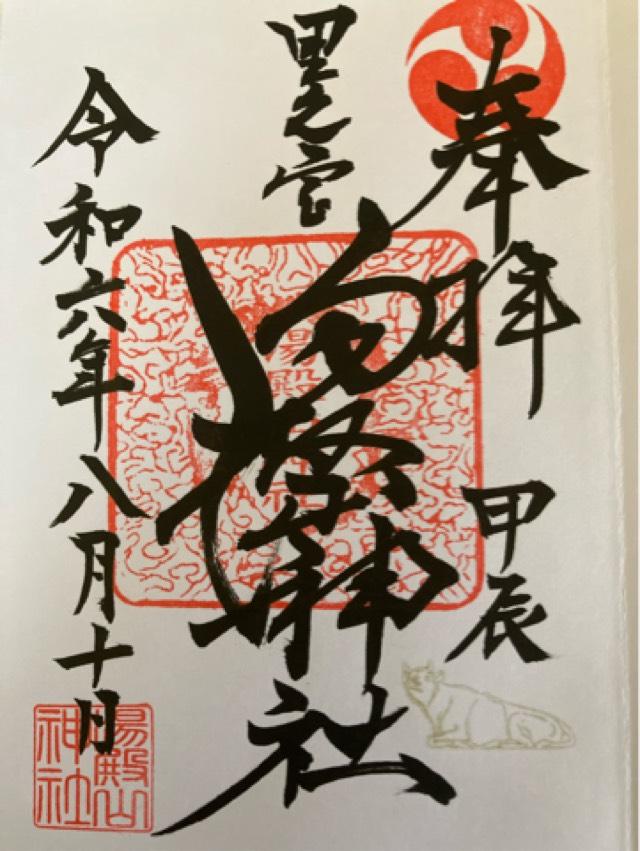 奉拝
甲辰
里之宮
湯殿山神社
令和六年八月十日
湯殿山
神社